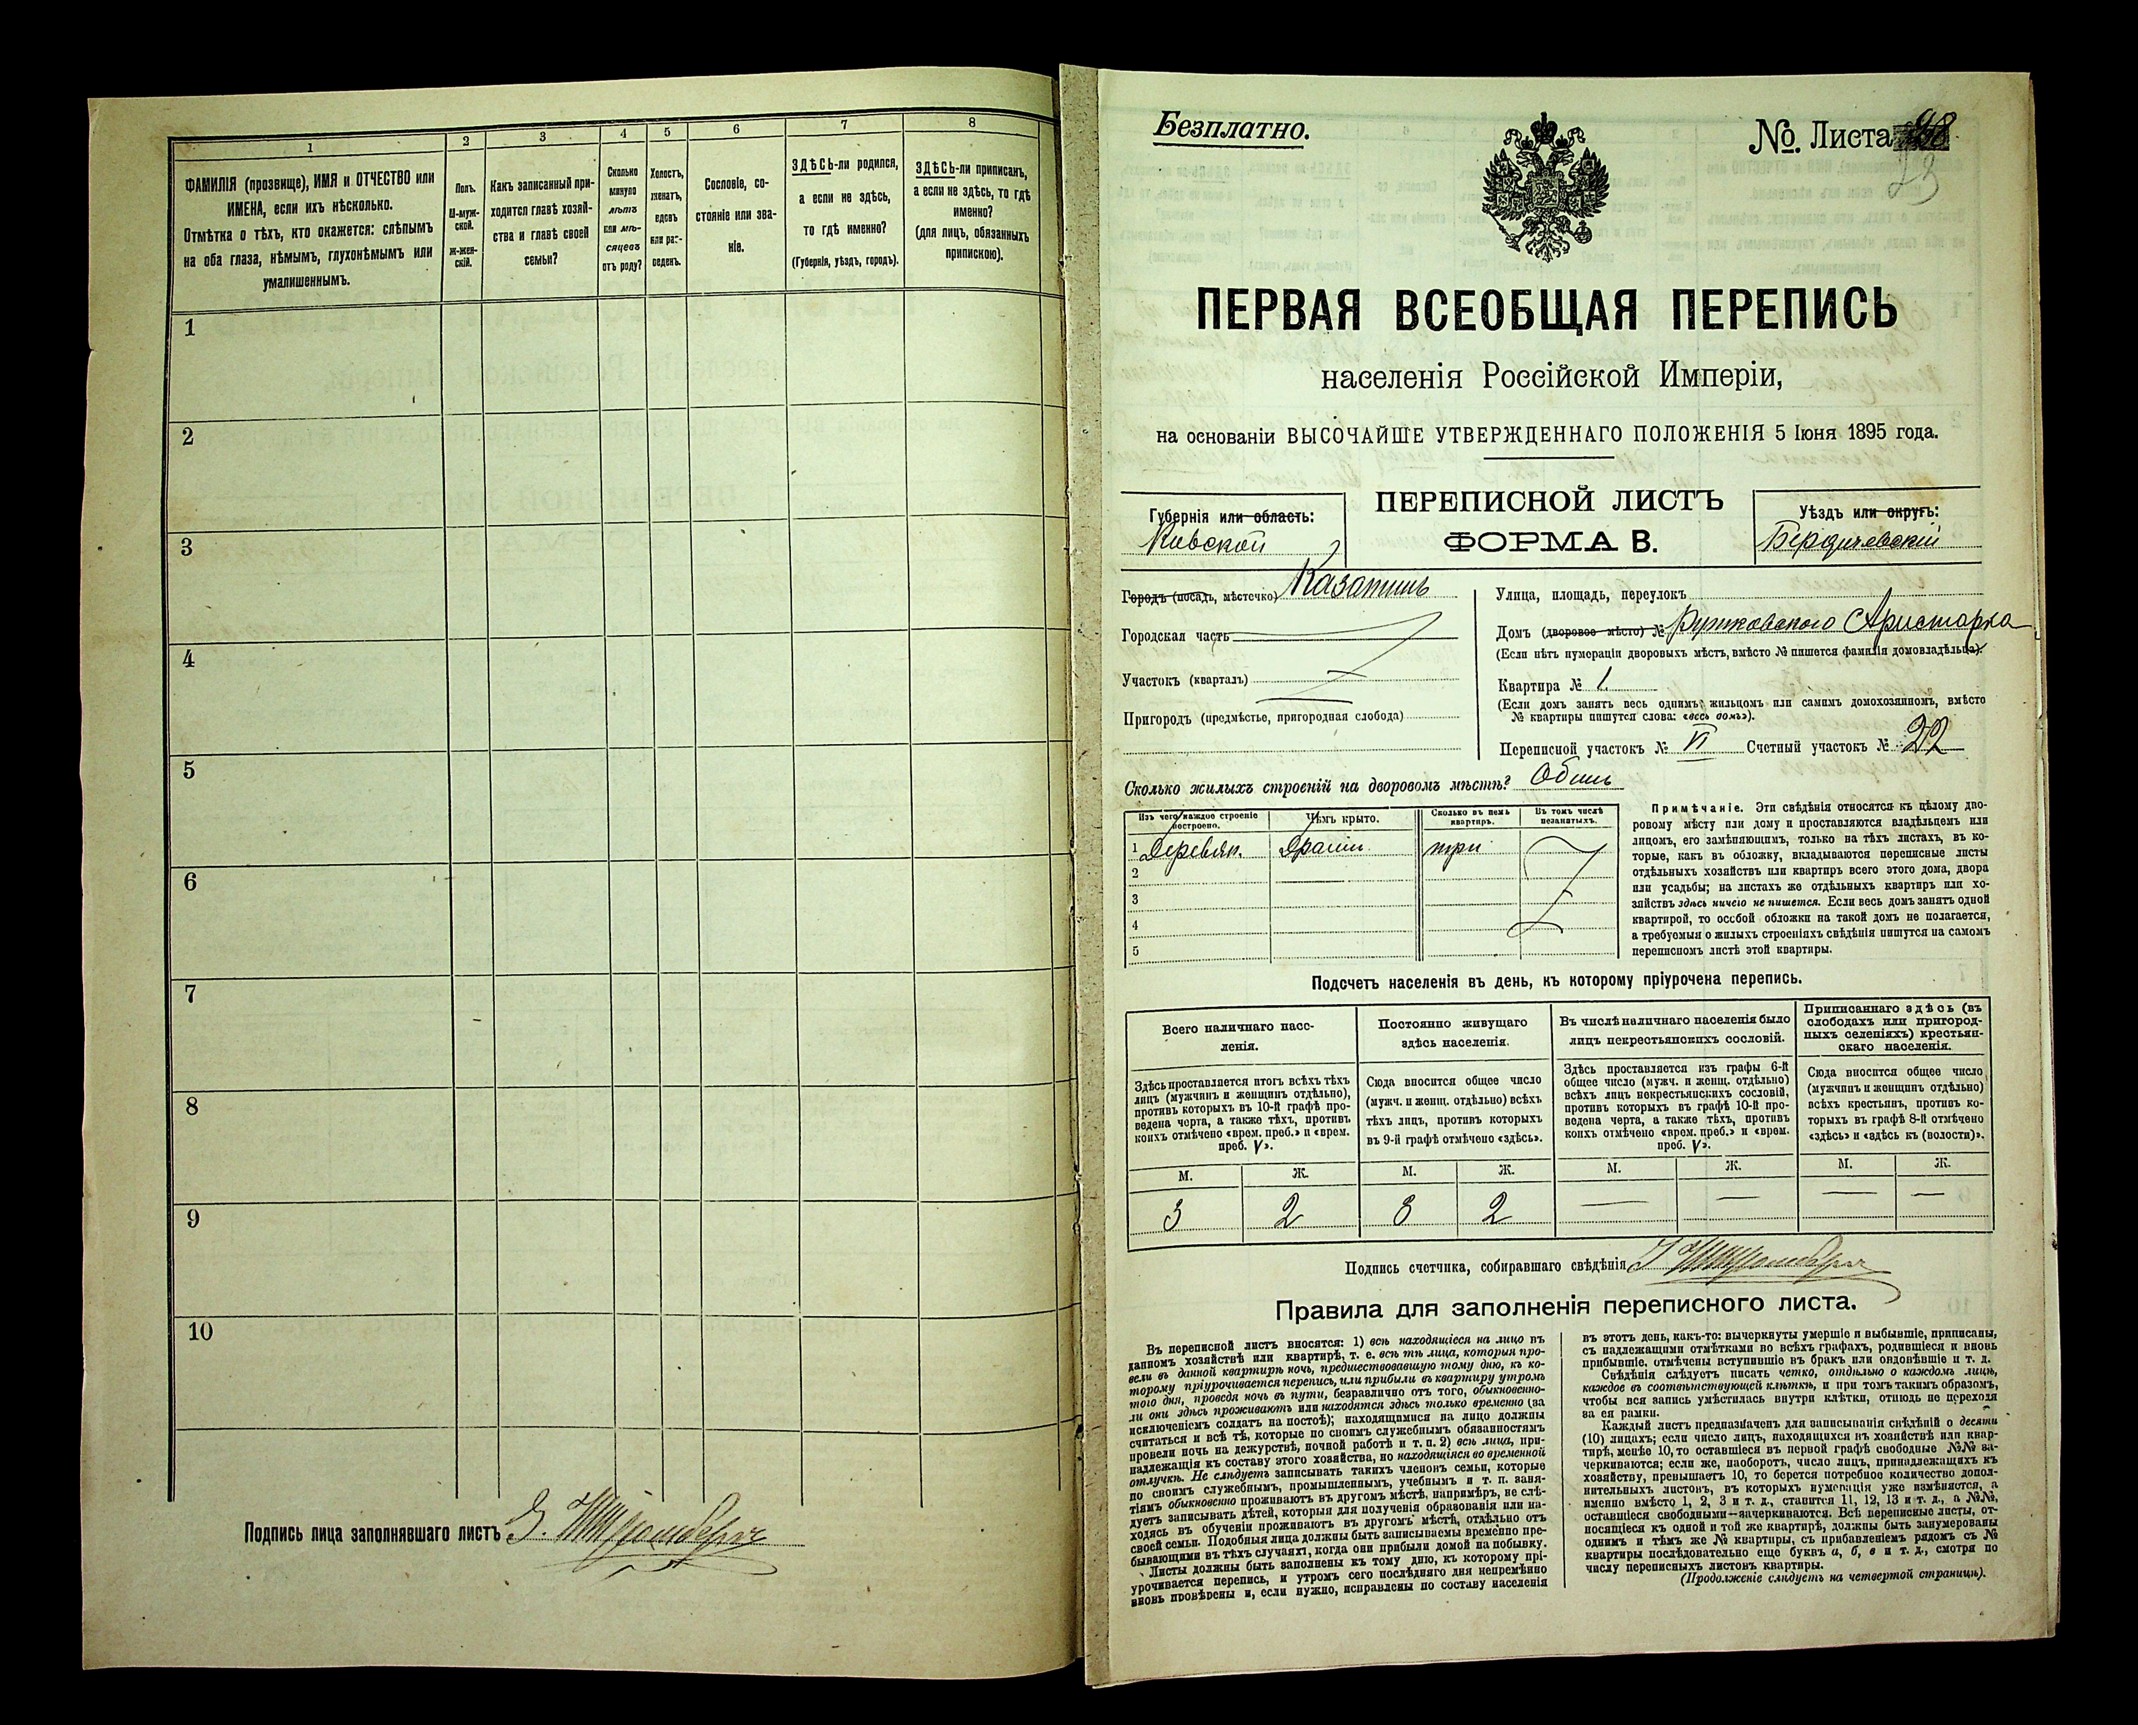 1
2
3
4
5
6
7
8
ФАМИЛІЯ (прозвище), ИМЯ и ОТЧЕСТВО или
ИМЕНА, если ихъ нѣсколько.
Отмѣтка о тѣхъ, кто окажется: слѣпымъ
на оба глаза, нѣмымъ, глухонѣмымъ или
умалишеннымъ.
Полъ.
М-муж-
ской.
Ж-жен-
скій.
Какъ записанный при-
ходится главѣ хозяй-
ства и главѣ своей
семьи?
Сколько
минуло
лѣтъ
или мѣ-
сяцевъ
отъ роду?
Холостъ,
женатъ,
вдовъ
или раз-
веденъ.
Сословіе, со-
стояніе или зва-
ніе.
ЗДѢСЬ-ли родился,
а если не здѣсь,
то гдѣ именно?
(Губернія, уѣздъ, городъ).
ЗДѢСЬ-ли приписанъ,
а если не здѣсь, то гдѣ
именно?
(для лицъ, обязанныхъ
припискою).
1
2
3
4
5
6
7
8
9
10
Подпись лица заполнявшаго листъ
Безплатно.
№. Листа 98
23
ПЕРВАЯ ВСЕОБЩАЯ ПЕРЕПИСЬ
населенія Россійской Имперіи,
на основаніи ВЫСОЧАЙШЕ УТВЕРЖДЕННАГО ПОЛОЖЕНІЯ 5 Іюня 1895 года.
ПЕРЕПИСНОЙ ЛИСТЪ
ФОРМА В.
Губернія или область:
Кіевской
Уѣздъ или округъ:
Бердичевскій
Городъ (посадъ, мѣстечко) Казатинъ
Городская часть
Участокъ (кварталъ)
Пригородъ (предмѣстье, пригородная слобода)
Улица, площадь, переулокъ
Домъ (дворовое мѣсто) № Рутковского Аристарха
(Если нѣтъ нумераціи дворовыхъ мѣстъ, вмѣсто № пишется фамилія домовладѣльца).
Квартира № 1.
(Если домъ занятъ весь однимъ жильцомъ или самимъ домохозяиномъ, вмѣсто
№ квартиры пишутся слова: «весь домъ»).
Переписной участокъ № VI Счетный участокъ № 22
Сколько жилыхъ строеній на дворовомъ мѣстѣ? Одинъ
Изъ чего каждое строеніе
построено.
Чѣмъ крыто.
Сколько въ немъ
квартиръ.
Въ томъ числѣ
незанятыхъ.
1 Деревян. Дранью три
2
3
4
5
Примѣчаніе. Эти свѣдѣнія относятся къ цѣлому дво-
ровому мѣсту или дому и проставляются владѣльцемъ или
лицомъ, его замѣняющимъ, только на тѣхъ листахъ, въ ко-
торые, какъ въ обложку, вкладываются переписные листы
отдѣльныхъ хозяйствъ или квартиръ всего этого дома, двора
или усадьбы; на листахъ же отдѣльныхъ квартиръ или хо-
зяйствъ здѣсь ничего не пишется. Если весь домъ занятъ одной
квартирой, то особой обложки на такой домъ не полагается,
а требуемыя о жилыхъ строеніяхъ свѣдѣнія пишутся на самомъ
переписномъ листѣ этой квартиры.
Подсчетъ населенія въ день, къ которому пріурочена перепись.
Всего наличнаго насе-
ленія.
Постоянно живущаго
здѣсь населенія.
Въ числѣ наличнаго населенія было
лицъ некрестьянскихъ сословій.
Приписаннаго здѣсь (въ
слободахъ или пригород-
ныхъ селеніяхъ) крестьян-
скаго населенія.
Здѣсь проставляется итогъ всѣхъ тѣхъ
лицъ (мужчинъ и женщинъ отдѣльно),
противъ которыхъ въ 10-й графѣ про-
ведена черта, а также тѣхъ, противъ
коихъ отмѣчено «врем. преб.» и «врем.
преб. V».
Сюда вносится общее число
(мужч. и женщ. отдѣльно) всѣхъ
тѣхъ лицъ, противъ которыхъ
въ 9-й графѣ отмѣчено «здѣсь».
Здѣсь проставляется изъ графы 6-й
общее число (мужч. и женщ. отдѣльно)
всѣхъ лицъ некрестьянскихъ сословій,
противъ которыхъ въ графѣ 10-й про-
ведена черта, а также тѣхъ, противъ
коихъ отмѣчено «врем. преб.» и «врем.
преб. V».
Сюда вносится общее число
(мужчинъ и женщинъ отдѣльно)
всѣхъ крестьянъ, противъ ко-
торыхъ въ графѣ 8-й отмѣчено
«здѣсь» и «здѣсь къ (волости)».
М. Ж. М. Ж. М. Ж. М. Ж.
3 2 3 2 — — — —
Подпись счетчика, собиравшаго свѣдѣнія
Правила для заполненія переписного листа.
Въ переписной листъ вносятся: 1) всѣ находящіеся на лицо въ
данномъ хозяйствѣ или квартирѣ, т. е. всѣ тѣ лица, которыя про-
вели въ данной квартирѣ ночь, предшествовавшую тому дню, къ ко-
торому пріурочивается перепись, или прибыли въ квартиру утромъ
того дня, проведя ночь въ пути, безразлично отъ того, обыкновенно-
ли они здѣсь проживаютъ или находятся здѣсь только временно (за
исключеніемъ солдатъ на постоѣ); находящимися на лицо должны
считаться и всѣ тѣ, которые по своимъ служебнымъ обязанностямъ
провели ночь на дежурствѣ, ночной работѣ и т. п. 2) всѣ лица, при-
надлежащія къ составу этого хозяйства, но находящіяся во временной
отлучкѣ. Не слѣдуетъ записывать такихъ членовъ семьи, которые
по своимъ служебнымъ, промышленнымъ, учебнымъ и т. п. заня-
тіямъ обыкновенно проживаютъ въ другомъ мѣстѣ, напримѣръ, не слѣ-
дуетъ записывать дѣтей, которыя для полученія образованія или на-
ходясь въ обученіи проживаютъ въ другомъ мѣстѣ, отдѣльно отъ
своей семьи. Подобныя лица должны быть записываемы временно пре-
бывающими въ тѣхъ случаяхъ, когда они прибыли домой на побывку.
Листы должны быть заполнены къ тому дню, къ которому прі-
урочивается перепись, и утромъ сего послѣдняго дня непремѣнно
вновь провѣрены и, если нужно, исправлены по составу населенія
въ этотъ день, какъ-то: вычеркнуты умершіе и выбывшіе, приписаны,
съ надлежащими отмѣтками во всѣхъ графахъ, родившіеся и вновь
прибывшіе, отмѣчены вступившіе въ бракъ или овдовѣвшіе и т. д.
Свѣдѣнія слѣдуетъ писать четко, отдѣльно о каждомъ лицѣ,
каждое въ соотвѣтствующей клѣткѣ, и при томъ такимъ образомъ,
чтобы вся запись умѣстилась внутри клѣтки, отнюдь не переходя
за ея рамки.
Каждый листъ предназначенъ для записыванія свѣдѣній о десяти
(10) лицахъ; если число лицъ, находящихся въ хозяйствѣ или квар-
тирѣ, менѣе 10, то оставшіеся въ первой графѣ свободные №№ за-
черкиваются; если же, наоборотъ, число лицъ, принадлежащихъ къ
хозяйству, превышаетъ 10, то берется потребное количество допол-
нительныхъ листовъ, въ которыхъ нумерація уже измѣняется, а
именно вмѣсто 1, 2, 3 и т. д., ставится 11, 12, 13 и т. д., а №№,
оставшіеся свободными—зачеркиваются. Всѣ переписные листы, от-
носящіеся къ одной и той же квартирѣ, должны быть занумерованы
однимъ и тѣмъ же № квартиры, съ прибавленіемъ рядомъ съ №
квартиры послѣдовательно еще буквъ а, б, в и т. д., смотря по
числу переписныхъ листовъ квартиры.
(Продолженіе слѣдуетъ на четвертой страницѣ).